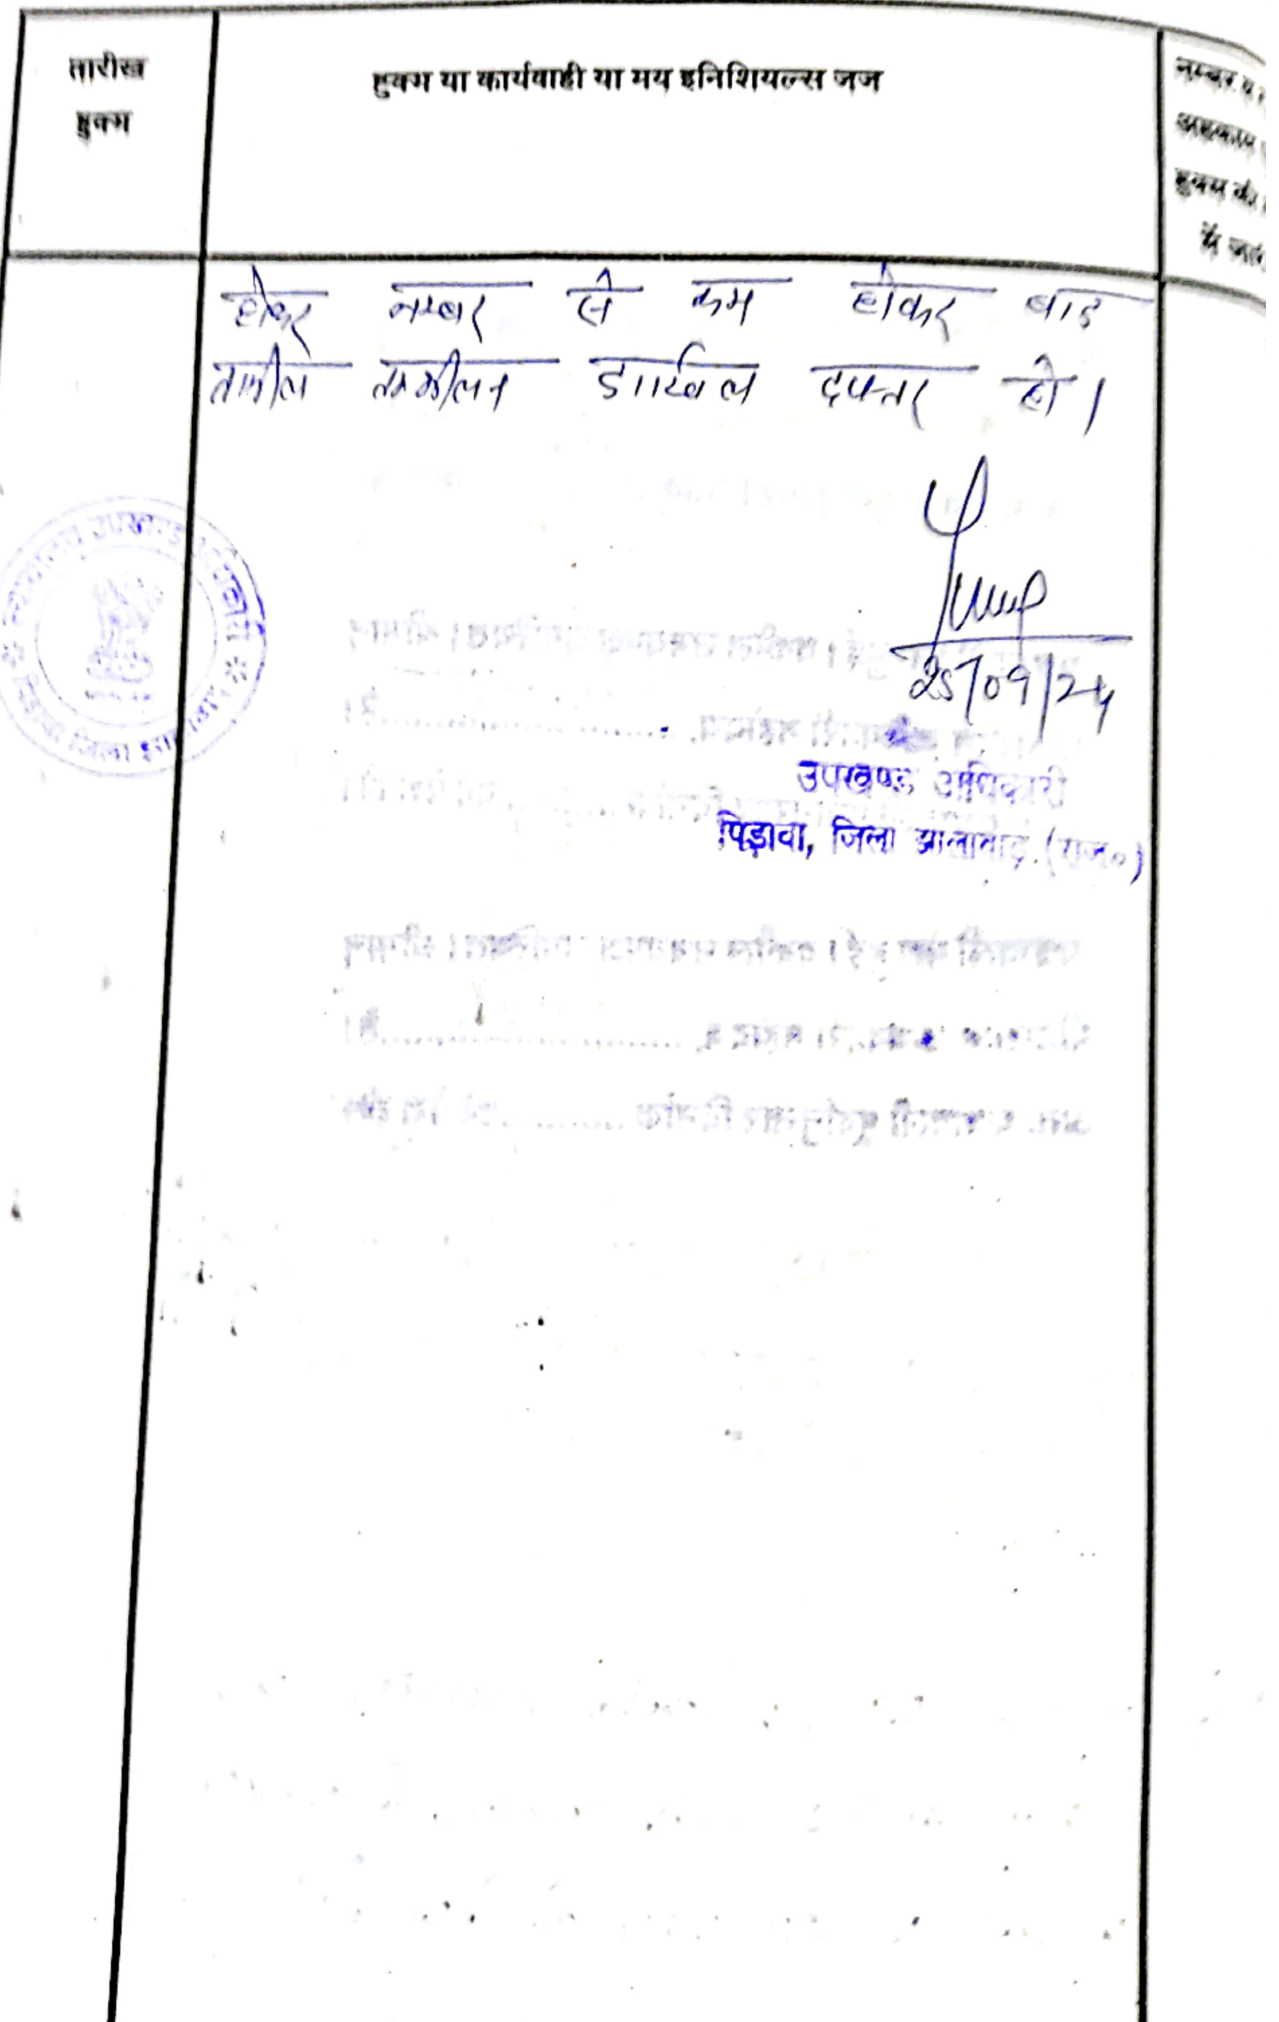 तारीख
हुक्म
हुक्म या कार्यवाही या मय इनिशियल्स जज
नम्बर व
अहकाम
हुक्म की
में जारी
होकर नम्बर से कम होकर बाद
तामील तकमीलन दाखिल दफ्तर हो।
25/09/24
उपखण्ड अधिकारी
पिड़ावा, जिला झालावाड़ (राज०)
न्यायालय उपखण्ड अधिकारी